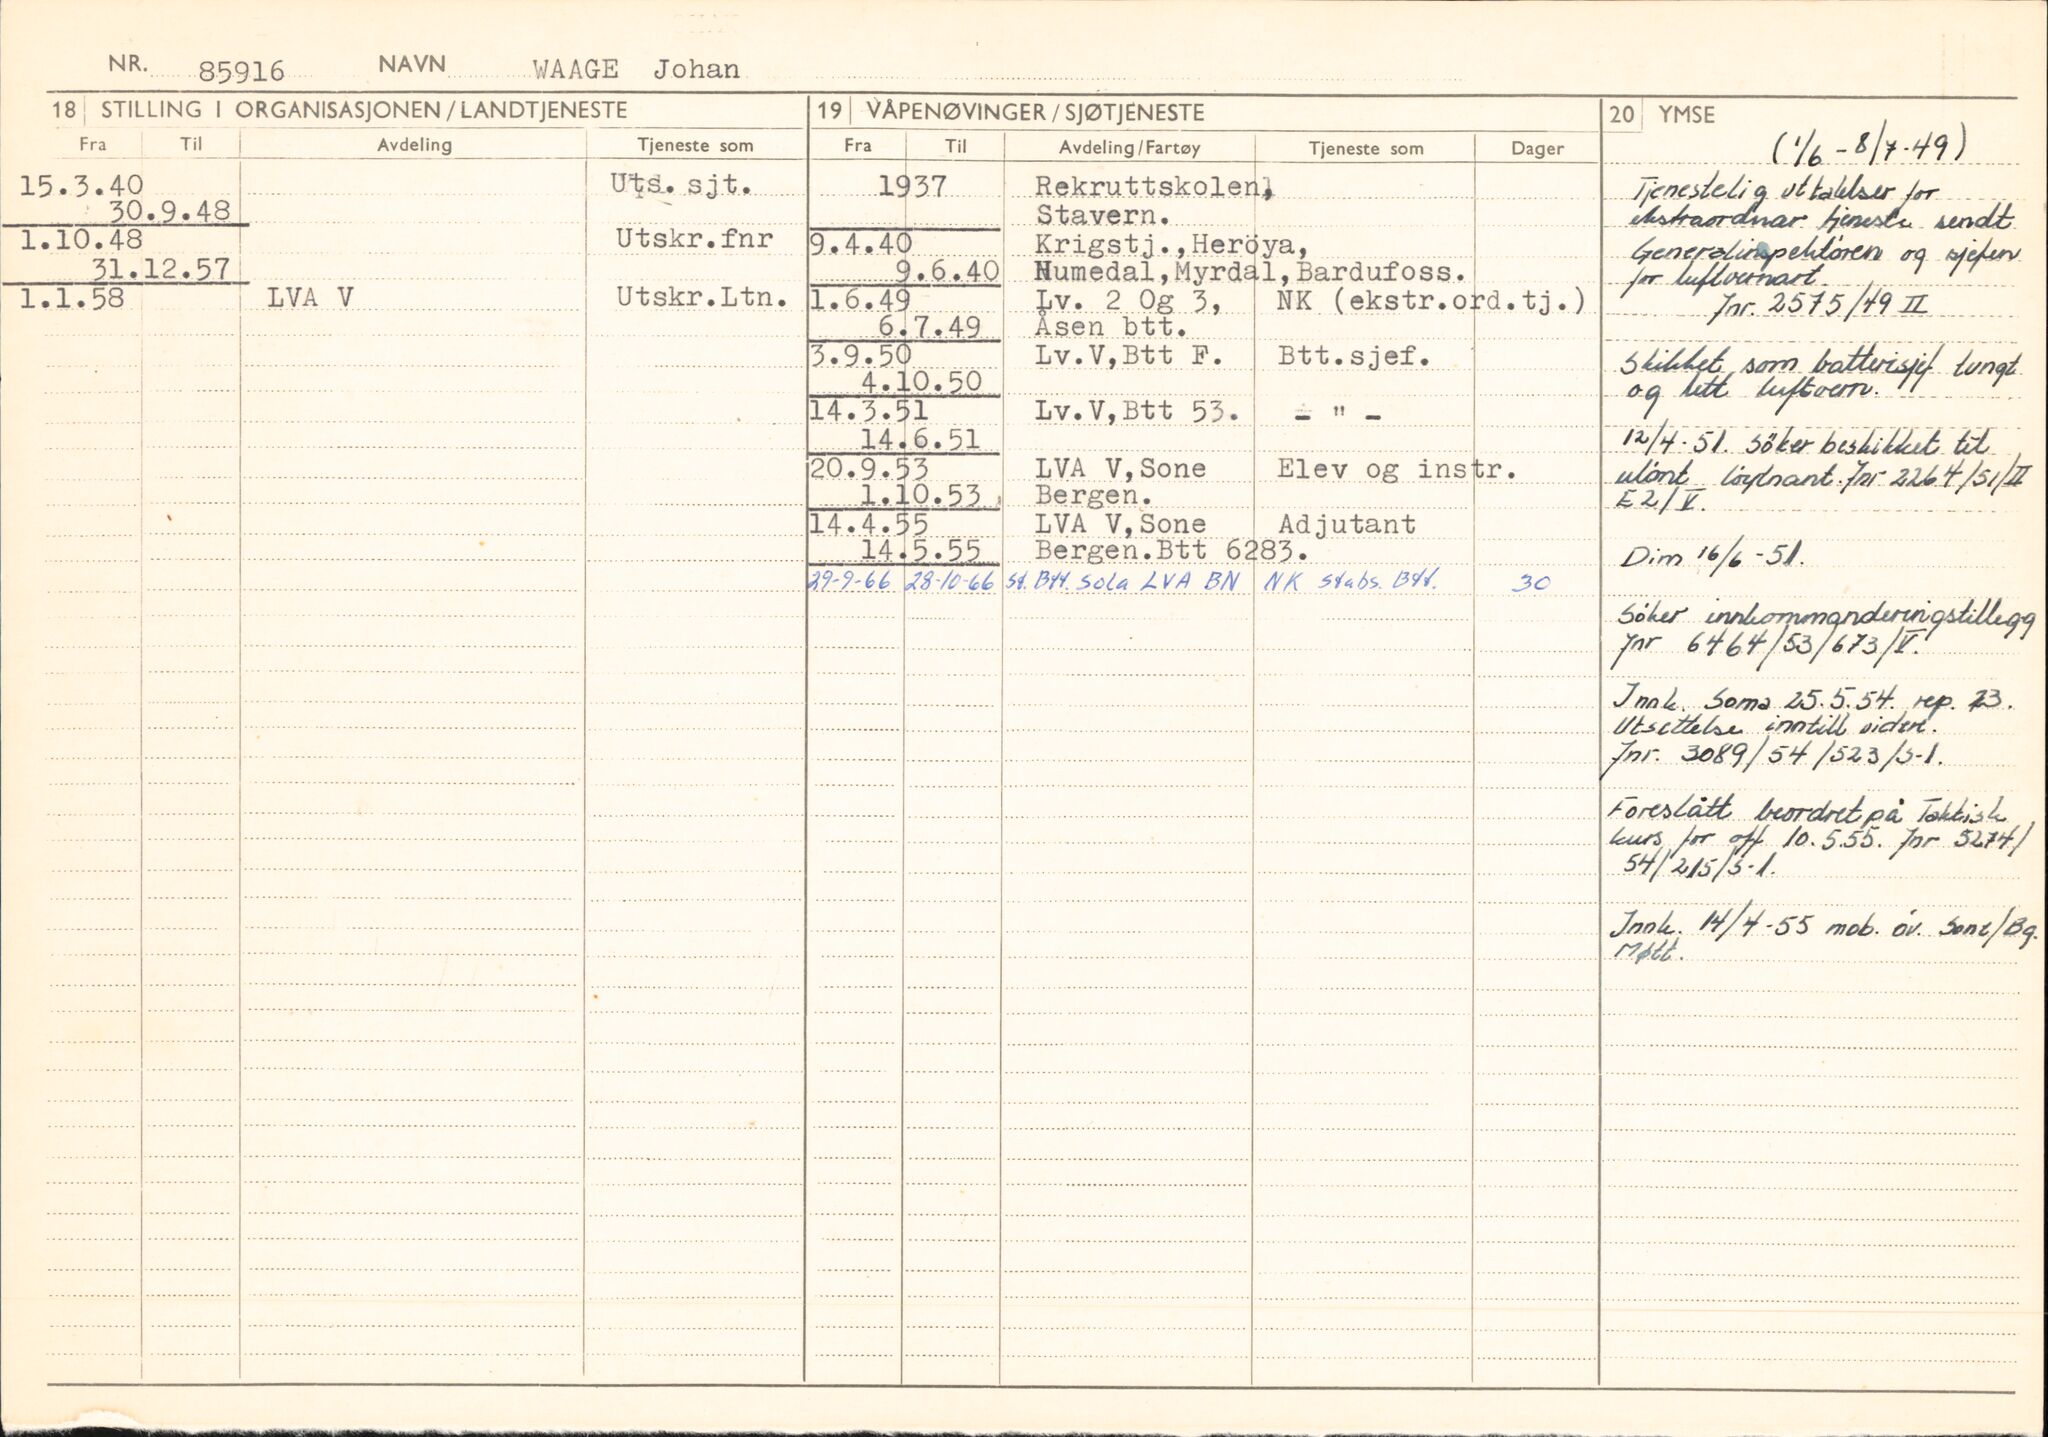 NR. 85916 NAVN WAAGE Johan
18 STILLING I ORGANISASJONEN/LANDTJENESTE
Fra Til Avdeling Tjeneste som
15.3.40 Uts. sjt.
30.9.48
1.10.48 Utskr.fnr
31.12.57
1.1.58 LVA V Utskr.Ltn.
19 VÅPENØVINGER/SJØTJENESTE
Fra Til Avdeling/Fartøy Tjeneste som Dager
1937 Rekruttskolen,
Stavern.
9.4.40 Krigstj.,Heröya,
9.6.40 Numedal,Myrdal,Bardufoss.
1.6.49 Lv. 2 Og 3, NK (ekstr.ord.tj.)
6.7.49 Åsen btt.
3.9.50 Lv.V,Btt F. Btt.sjef.
4.10.50
14.3.51 Lv.V,Btt 53. - " -
14.6.51
20.9.53 LVA V,Sone Elev og instr.
1.10.53 Bergen.
14.4.55 LVA V,Sone Adjutant
14.5.55 Bergen.Btt 6283.
29-9-66 28-10-66 St. Btt. Sola LVA BN NK Stabs. Btt. 30
20 YMSE
(1/6 - 8/7-49)
Tjenestelig uttalelser for
ekstraordnær tjeneste sendt
Generalinspektören og sjefen
for luftvernart.
Jnr. 2575/49 II
Skikket som batterisjef tungt
og lett luftvern.
12/4-51. Söker beskikket til
ulönt löytnant. Jnr 2264/51/II
E2/V.
Dim 16/6-51.
Söker innkommanderingstillegg
Jnr 6464/53/673/V.
Innk. Soma 25.5.54. rep. 73.
Utsettelse inntill videre.
Jnr. 3089/54/523/S-1.
Foreslått beordret på Taktisk
kurs for off 10.5.55. Jnr 5274/
54/215/S-1.
Innk. 14/4-55 mob. öv. Sone/Bg.
Møtt.